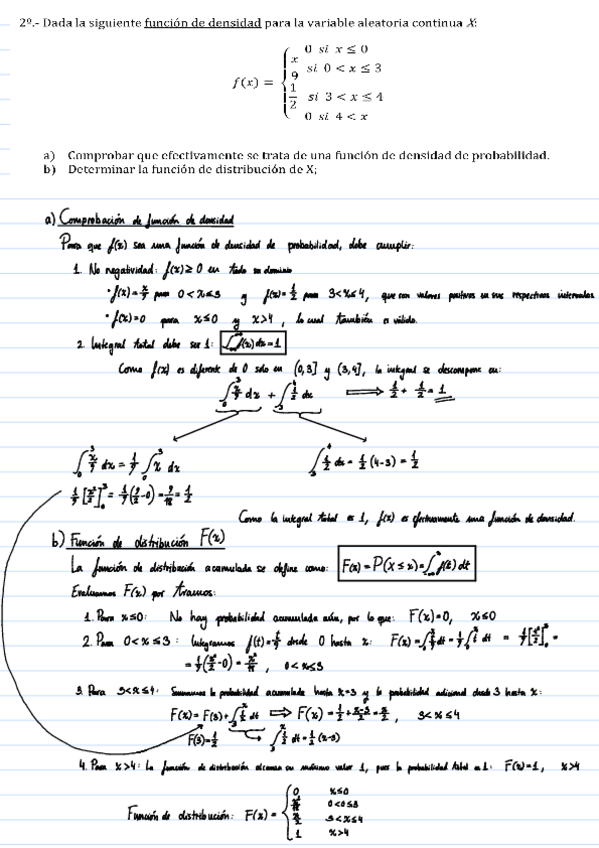 2º.- Dada la siguiente función de densidad para la variable aleatoria continua X:
f(x) = { 0 si x ≤ 0
x/9 si 0 < x ≤ 3
1/2 si 3 < x ≤ 4
0 si 4 < x
a) Comprobar que efectivamente se trata de una función de densidad de probabilidad.
b) Determinar la función de distribución de X;
a) Comprobación de función de densidad
Para que f(x) sea una función de densidad de probabilidad, debe cumplir:
1. No negatividad: f(x) ≥ 0 en todo su dominio
· f(x) = x/9 para 0 < x ≤ 3 y f(x) = 1/2 para 3 < x ≤ 4, que son valores positivos en sus respectivos intervalos
· f(x) = 0 para x ≤ 0 y x > 4, lo cual también es válido.
2. Integral total debe ser 1: ∫f(x) dx = 1
Como f(x) es diferente de 0 solo en (0,3] y (3,4], la integral se descompone en:
∫₀³ x/9 dx + ∫₃⁴ 1/2 dx ⟹ 1/2 + 1/2 = 1
∫₀³ x/9 dx = 1/9 ∫₀³ x dx
∫₃⁴ 1/2 dx = 1/2 (4-3) = 1/2
1/9 [x²/2]₀³ = 1/9 (9/2 - 0) = 9/18 = 1/2
Como la integral total es 1, f(x) es efectivamente una función de densidad.
b) Función de distribución F(x)
La función de distribución acumulada se define como: F(x) = P(X ≤ x) = ∫f(t) dt
Evaluamos F(x) por tramos:
1. Para x ≤ 0: No hay probabilidad acumulada aún, por lo que: F(x) = 0, x ≤ 0
2. Para 0 < x ≤ 3: Integramos f(t) = t/9 desde 0 hasta x: F(x) = ∫₀ˣ t/9 dt = 1/9 ∫₀ˣ t dt = 1/9 [t²/2]₀ˣ =
= 1/9 (x²/2 - 0) = x²/18, 0 < x ≤ 3
3. Para 3 < x ≤ 4: Sumamos la probabilidad acumulada hasta x=3 y la probabilidad adicional desde 3 hasta x:
F(x) = F(3) + ∫₃ˣ 1/2 dt ⟹ F(x) = 1/2 + x-3/2 = x-2/2, 3 < x ≤ 4
F(3) = 1/2 ∫₃ˣ 1/2 dt = 1/2 (x-3)
4. Para x > 4: La función de distribución alcanza su máximo valor 1, pues la probabilidad total es 1: F(x) = 1, x > 4
Función de distribución: F(x) = { 0 x ≤ 0
x²/18
3 < x ≤ 4
1 x > 4